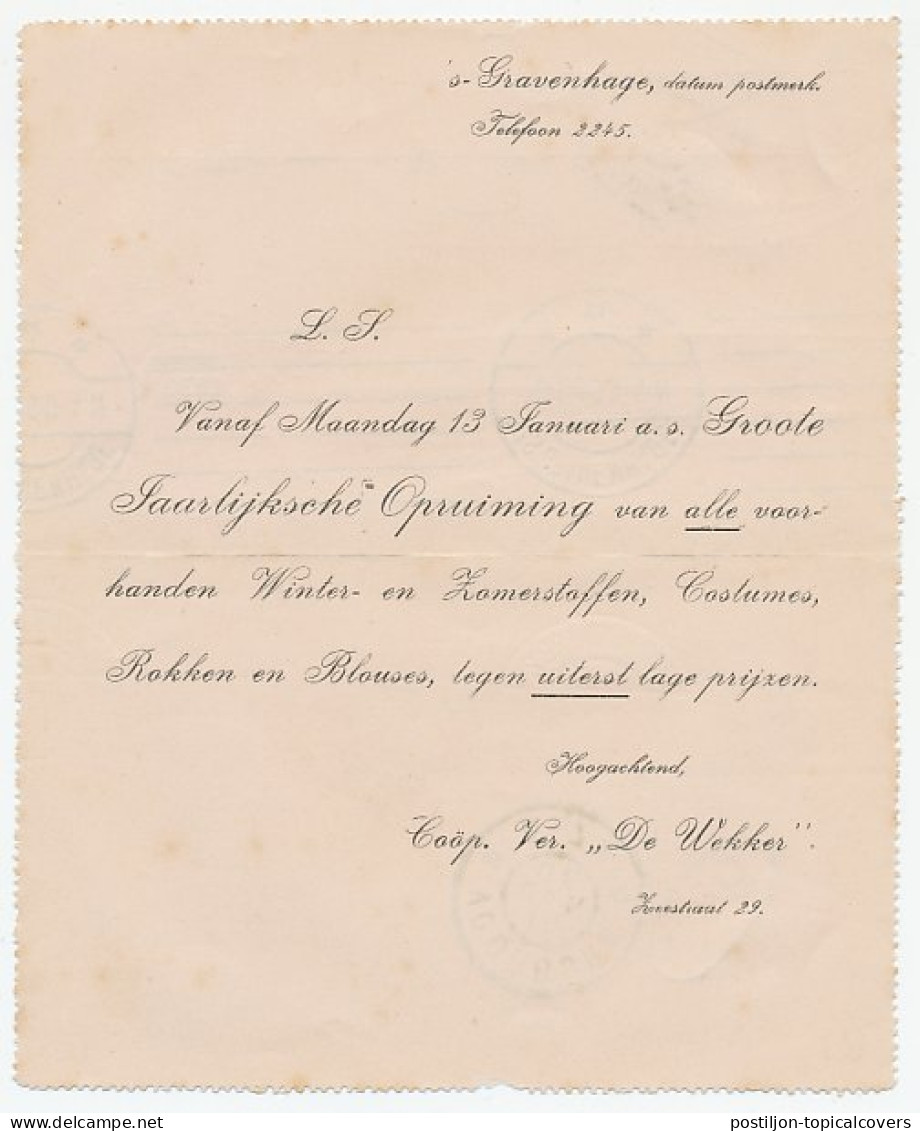 's-Gravenhage, datum postmerk.
Telefoon 2245.
L. S.
Vanaf Maandag 13 Januari a. s. Groote
Jaarlijksche Opruiming van alle voor-
handen Winter- en Zomerstoffen, Costumes,
Rokken en Blouses, tegen uiterst lage prijzen.
Hoogachtend,
Coöp. Ver. „De Wekker".
Zeestraat 29.
postiljon-topicalcovers